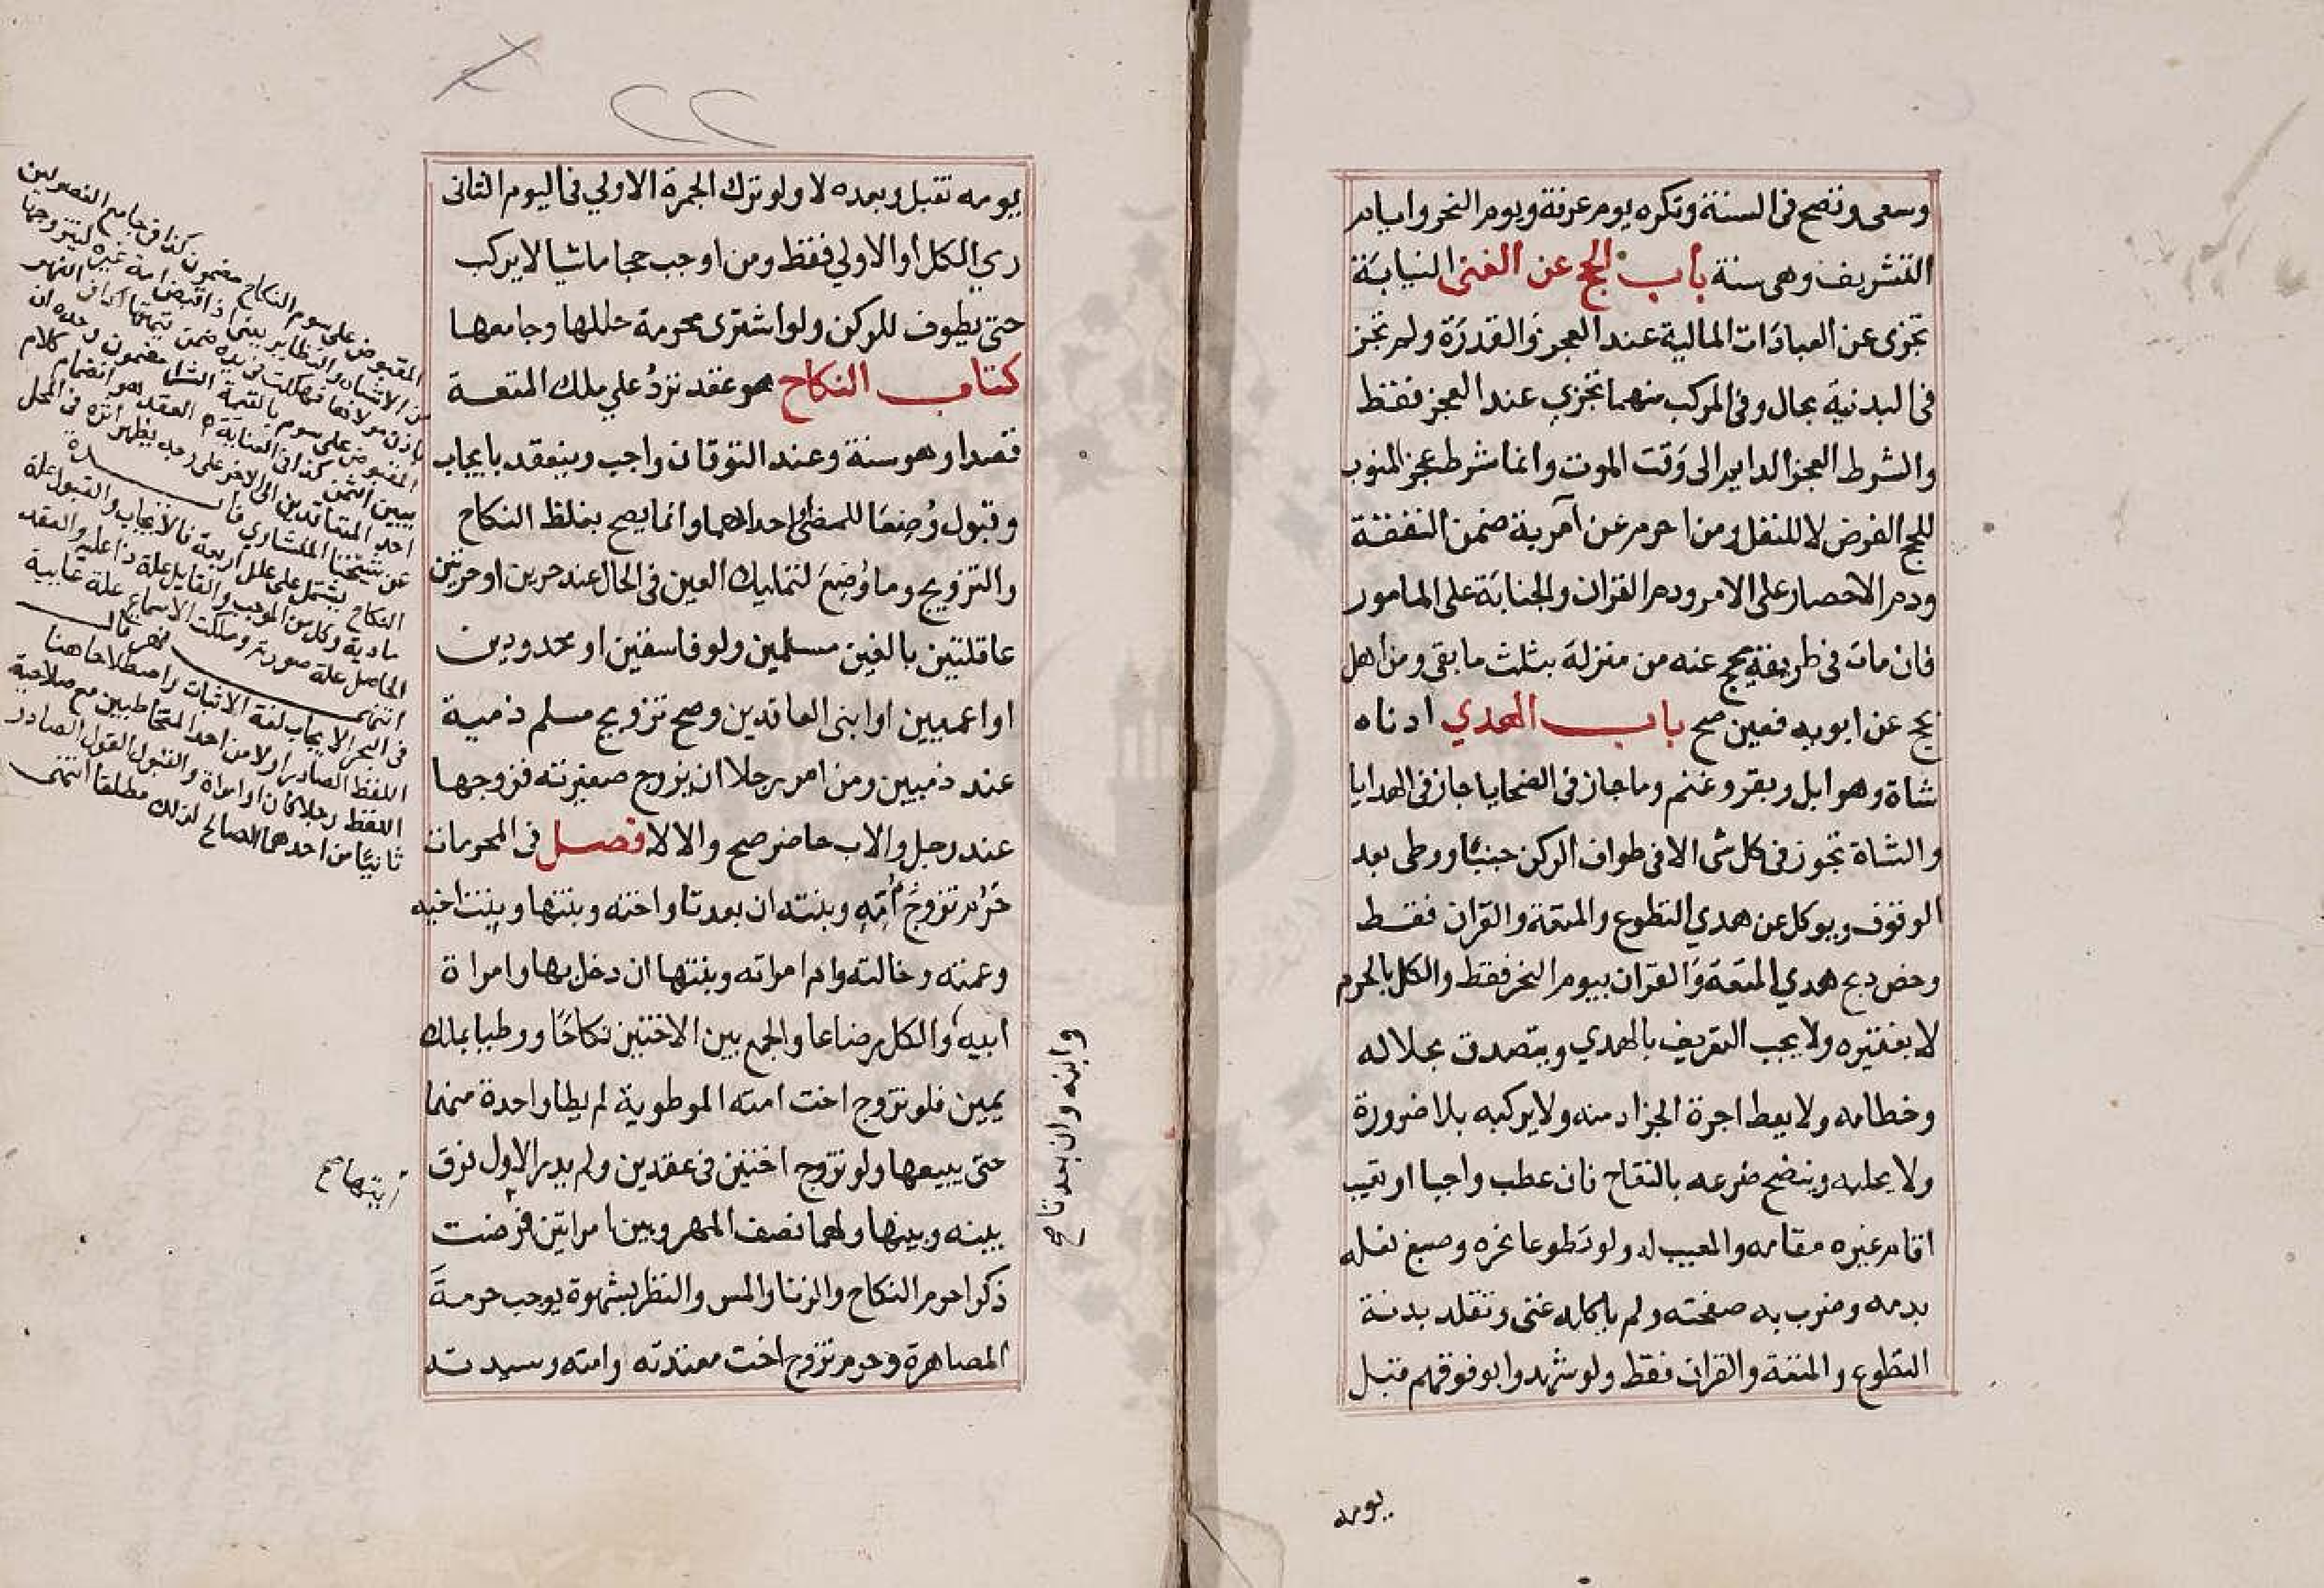 وسعى وتصح فى السنة وتكره يوم عرفة ويوم النحر وايام
التشريف وهى سنة باب الحج عن الغير النيابة
تجزى عن العبادات المالية عند العجز والقدرة ولم تجز
فى البدنية بحال وفى المركب منهما تجزي عند العجز فقط
والشرط العجز الدايم الى وقت الموت وانما شرط عجز المنوب
للحج الفرض لا للنفل ومن احرم عن آمرية ضمن النفقة
ودم الاحصار على الامر ودم القران والجناية على المامور
فان مات فى طريقه يحج عنه من منزله بثلث ما بقى ومن اهل
بحج عن ابويه فعين صح باب الهدي ادناه
شاة وهو ابل وبقر وغنم وما جاز فى الضحايا جاز فى الهدايا
والشاة تجوز فى كل شى الا فى طواف الركن جنبًا ووطى بعد
الوقوف ويوكل عن هدي التطوع والمتعة والقران فقط
وخص دبح هدي المتعة والقران بيوم النحر فقط والكل بالحرم
لا بفقيره ولا يجب التعريف بالهدي ويتصدق بجلاله
وخطامه ولا يعط اجرة الجزار منه ولا يركبه بلا ضرورة
ولا يحلبه وينضح ضرعه بالنقاح فان عطب واجبا او تعيب
اقام غيره مقامه والمعيب له ولو تطوعا نحره وصبغ نعله
بدمه وضرب به صفحته ولم ياكله غنى وتقلد بدنة
التطوع والمتعة والقران فقط ولو شهدوا بوقوفهم قبل
يومه
٢٢
يومه تقبل وبعده لا ولو ترك الجمرة الاولي فى اليوم الثانى
رمى الكل او الاولي فقط ومن اوجب حجا ماشيا لا يركب
حتى يطوف للركن ولو اشترى محرمة حللها وجامعها
كتاب النكاح هو عقد نزدُ علي ملك المتعة
قصدا وهو سنة وعند التوقان واجب وينعقد بايجاب
وقبول وُضِعَا للمضى او احدهما وانما يصح بلفظ النكاح
والتزويج وما وُضِعَ لتمليك العين فى الحال عند حرين او حر وحرتين
عاقلين بالغين مسلمين ولو فاسقين او محدودين
او اعميين او ابنى العاقدين وصح تزويج مسلم ذمية
عند ذميين ومن امر رجلا ان يزوج صغيرته فزوجها
عند رجل والاب حاضر صح والا لا فصل فى المحرمات
حَرُم تزوجُ أُمِّهِ وبنته ان بعدتا واخته وبنتها وبنت اخيه
وعمته وخالته وام امراته وبنتها ان دخل بها وامراة
ابيه والكل رضاعا والجمع بين الاختين نكاحًا ووطيا بملك
يمين فلو تزوج اخت امته الموطوية لم يطا واحدة منهما
حتى يبيعها ولو تزوج اختين فى عقدين ولم يدر الاول فرق
بينه وبينها ولهما نصف المهر وبين امراتين فرضت
ذكرا حرم النكاح والزنا والمس والنظر بشهوة يوجب حرمة
المصاهرة وحرم تزوج اخت معتدته وامته وسيدته
وابنه وان بعد تاح
المقبوض على سوم النكاح مضمون كذا فى جامع الفصولين
المقبوض على سوم
احد المتعاقدين الى الاخر على وجه يظهر اثره فى المحل
النكاح يشتمل على علل اربعة فالايجاب والقبول علة
فى البحر الايجاب لغة الاثبات واصطلاحا هنا
اللفظ الصادر اولا من احد المتخاطبين مع صلاحية
اللفظ رجلا كان او امراة والقبول القول الصادر
ثانيًا من احدهما الصالح لذلك مطلقا انتهى